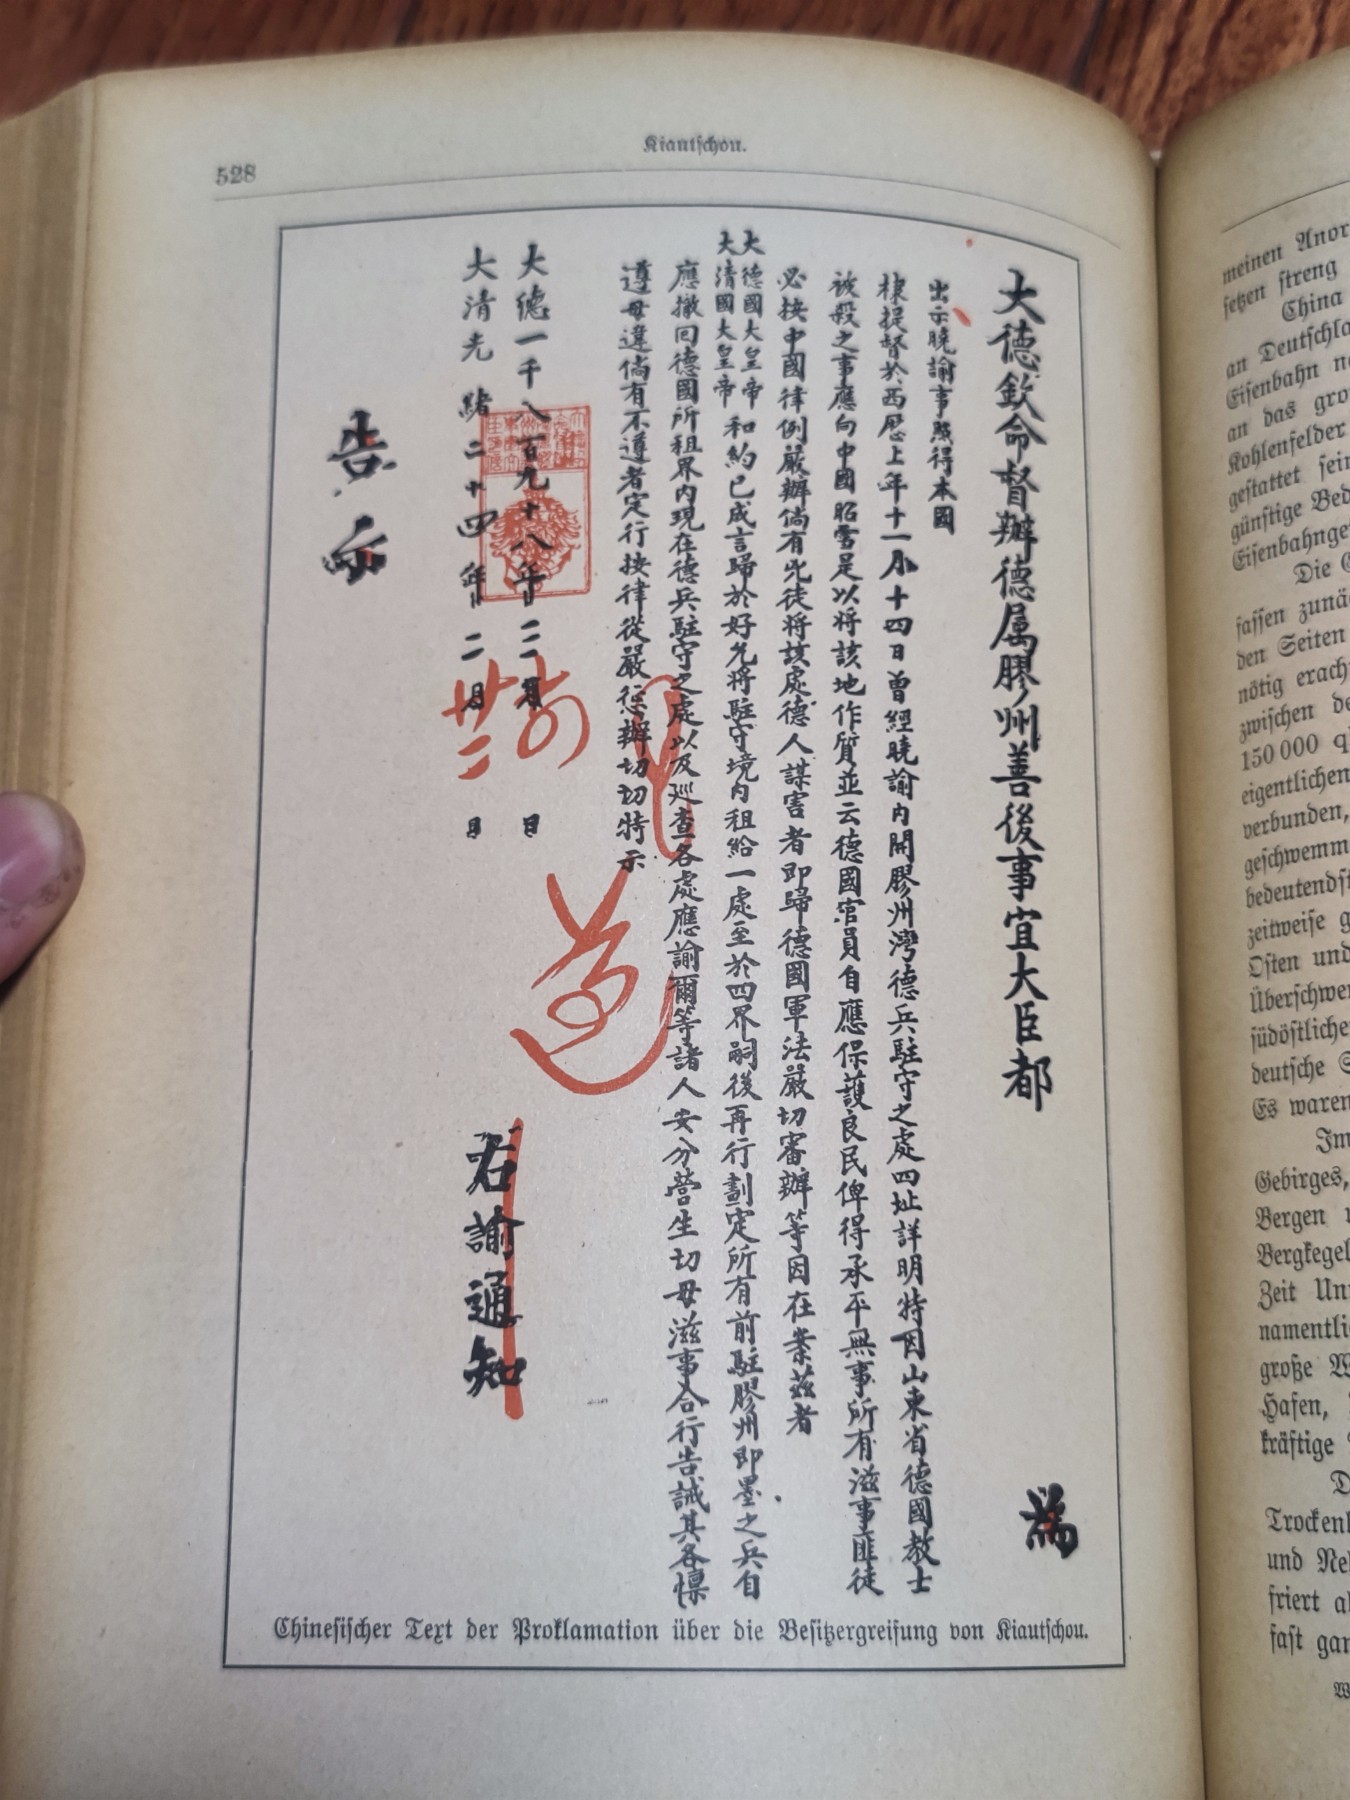 528
Kiautschou.
大德欽命督辦德属膠州善後事宜大臣都 為
出示曉諭事照得本國
棣提督於西厯上年十一月十四日曾經曉諭內開膠州灣德兵駐守之處四址詳明特因山東省德國教士
被殺之事應向中國昭雪是以將該地作質並云德國官員自應保護良民俾得承平無事所有滋事匪徒
必按中國律例嚴辦倘有兇徒將該處德人謀害者即歸德國軍法嚴切審辦等因在案茲者
大德國大皇帝
大清國大皇帝
和約已成言歸於好允將駐守境內租給一處至於四界嗣後再行劃定所有前駐膠州即墨之兵自
應撤回德國所租界內現在德兵駐守之處以及巡查各處應諭爾等諸人安分營生切毋滋事合行告誡其各懍
遵毋違倘有不遵者定行按律從嚴懲辦切切特示
大德一千八百九十八年三月 日
大清光緒二十四年二月廿二日
遵
右諭通知
告示
Chinesischer Text der Proklamation über die Besitzergreifung von Kiautschou.
meinen Anor
setzen streng
China
an Deutschla
Eisenbahn n
an das gro
Kohlenfelder
gestattet sein
günstige Bed
Eisenbahnge
Die
fassen zunä
den Seiten
nötig erach
zwischen de
150 000 q
eigentlichen
verbunden,
geschwemm
bedeutendst
zeitweise g
Osten und
Überschwe
südöstliche
deutsche S
Es waren
Im
Gebirges,
Bergen
Bergkegel
Zeit Un
namentli
große W
Hafen,
kräftige
D
Trockenh
und Ne
friert a
fast gan